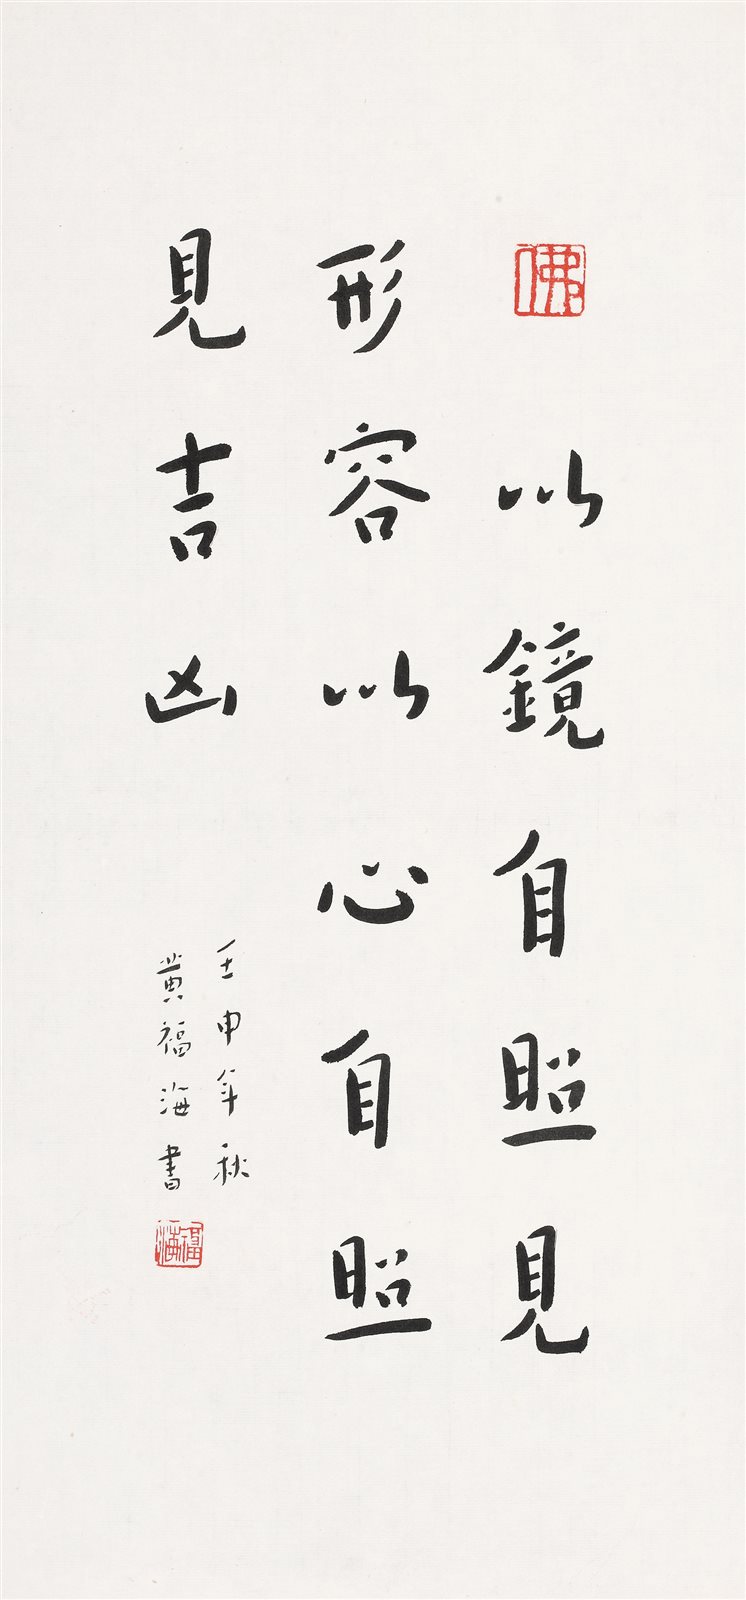 佛
以鏡自照見
形容以心自照
見吉凶
壬申年秋
黄福海書
福海